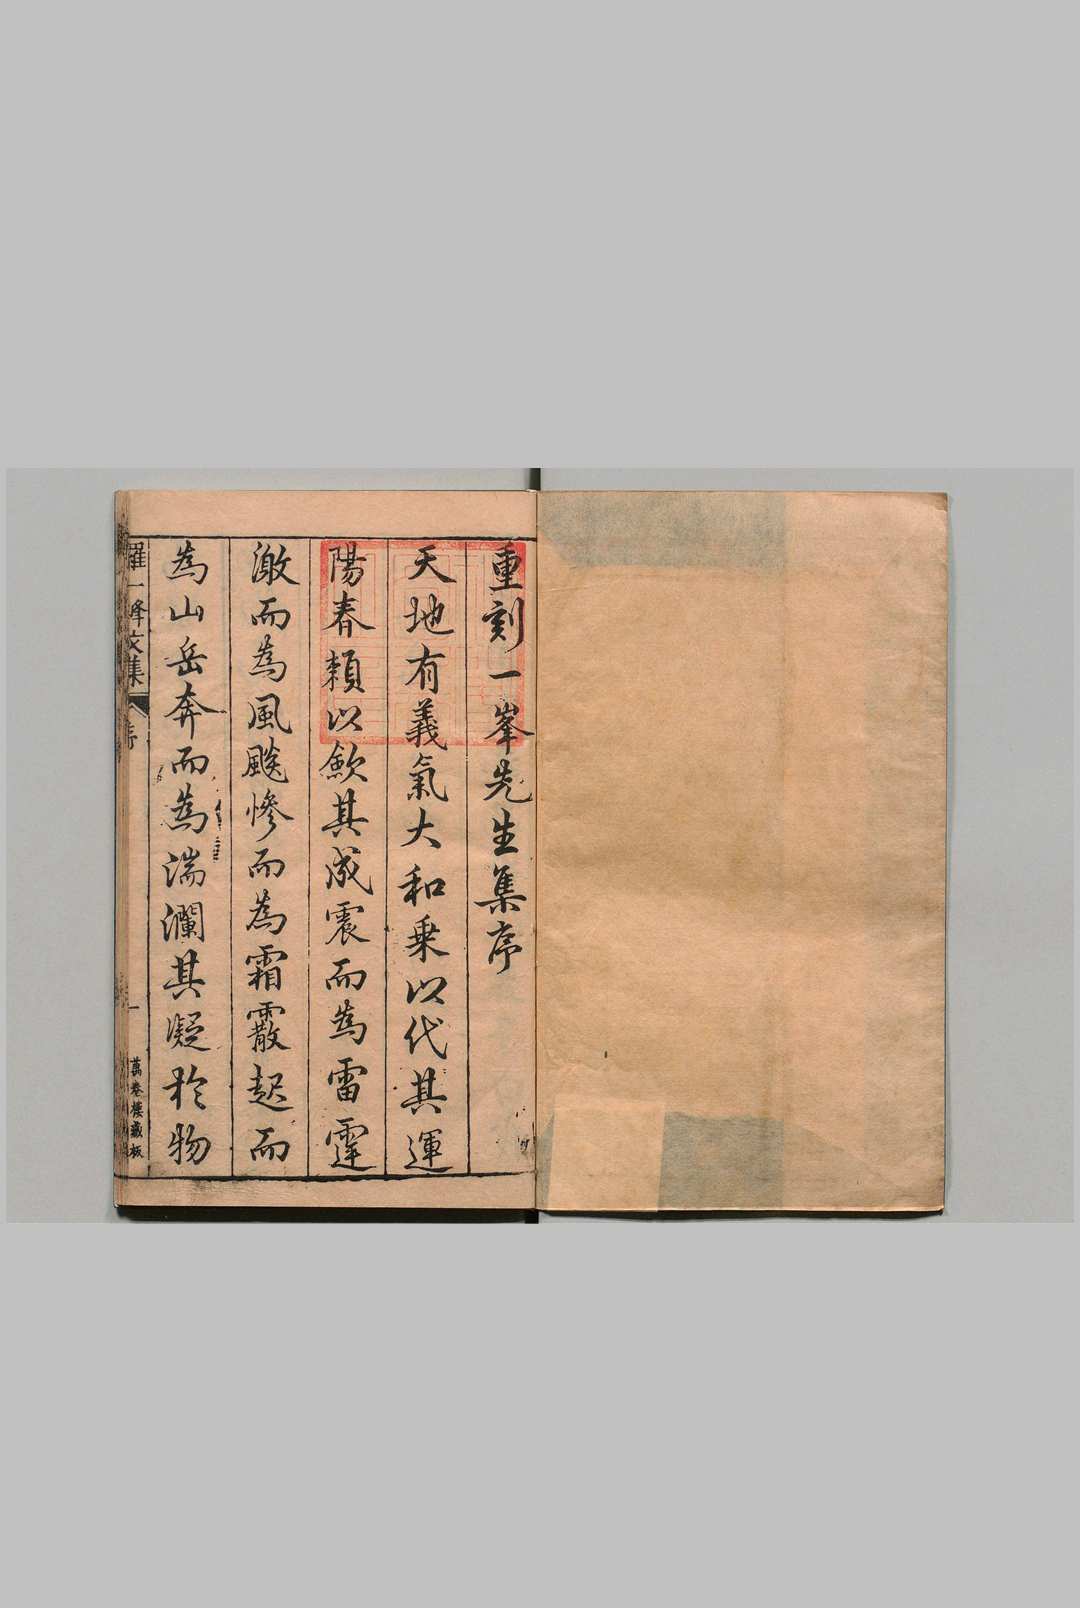 重刻一峯先生集序
天地有義氣大和乗以代其運
陽春頼以歛其成震而為雷霆
激而為風飈慘而為霜霰起而
為山岳奔而為湍瀾其凝於物
羅一峰文集
序
一
萬卷樓藏板